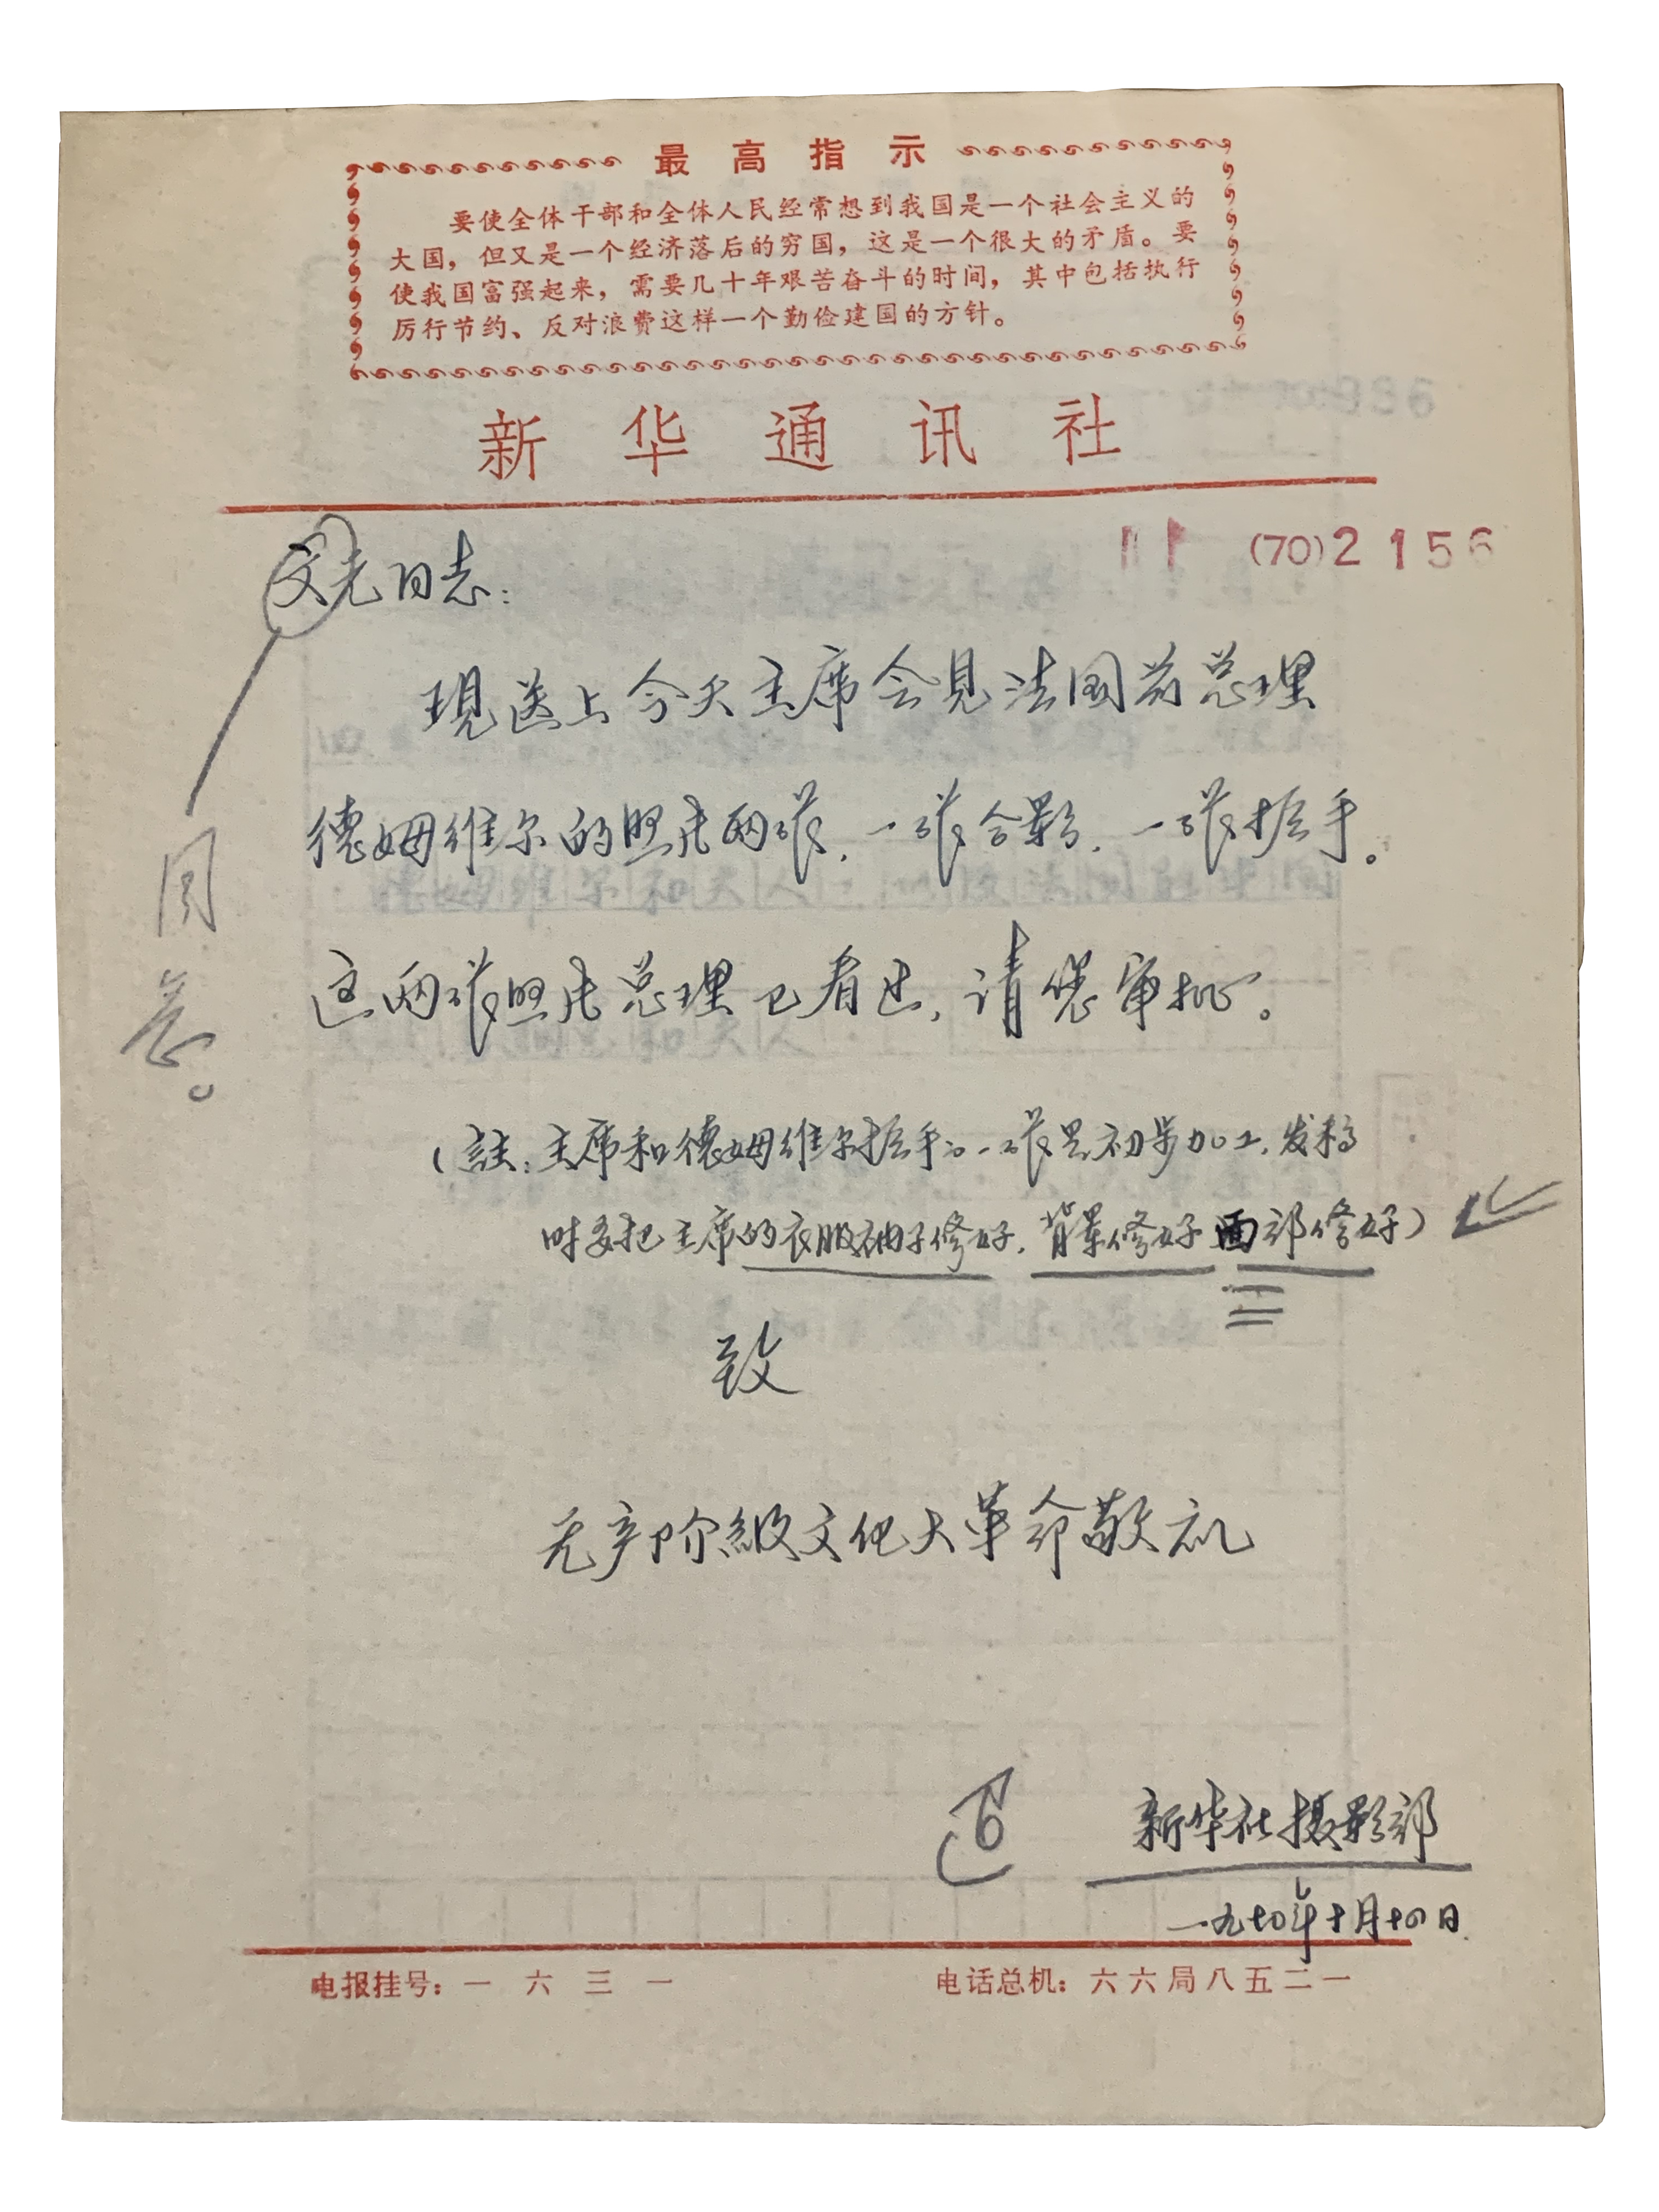 最高指示
要使全体干部和全体人民经常想到我国是一个社会主义的
大国，但又是一个经济落后的穷国，这是一个很大的矛盾。要
使我国富强起来，需要几十年艰苦奋斗的时间，其中包括执行
厉行节约、反对浪费这样一个勤俭建国的方针。
新华通讯社
(70)2156
文元同志：
現送上今天主席会见法国前总理
德姆维尔的照片两张，一张合影，一张握手。
这两张照片总理已看过，请您审批。
同意。
（註：主席和德姆维尔握手的一张是初步加工，发稿
时要把主席的衣服袖子修好，背景修好面部修好）
致
无产阶級文化大革命敬礼
新华社摄影部
一九七〇年十月十四日
电报挂号：一六三一
电话总机：六六局八五二一